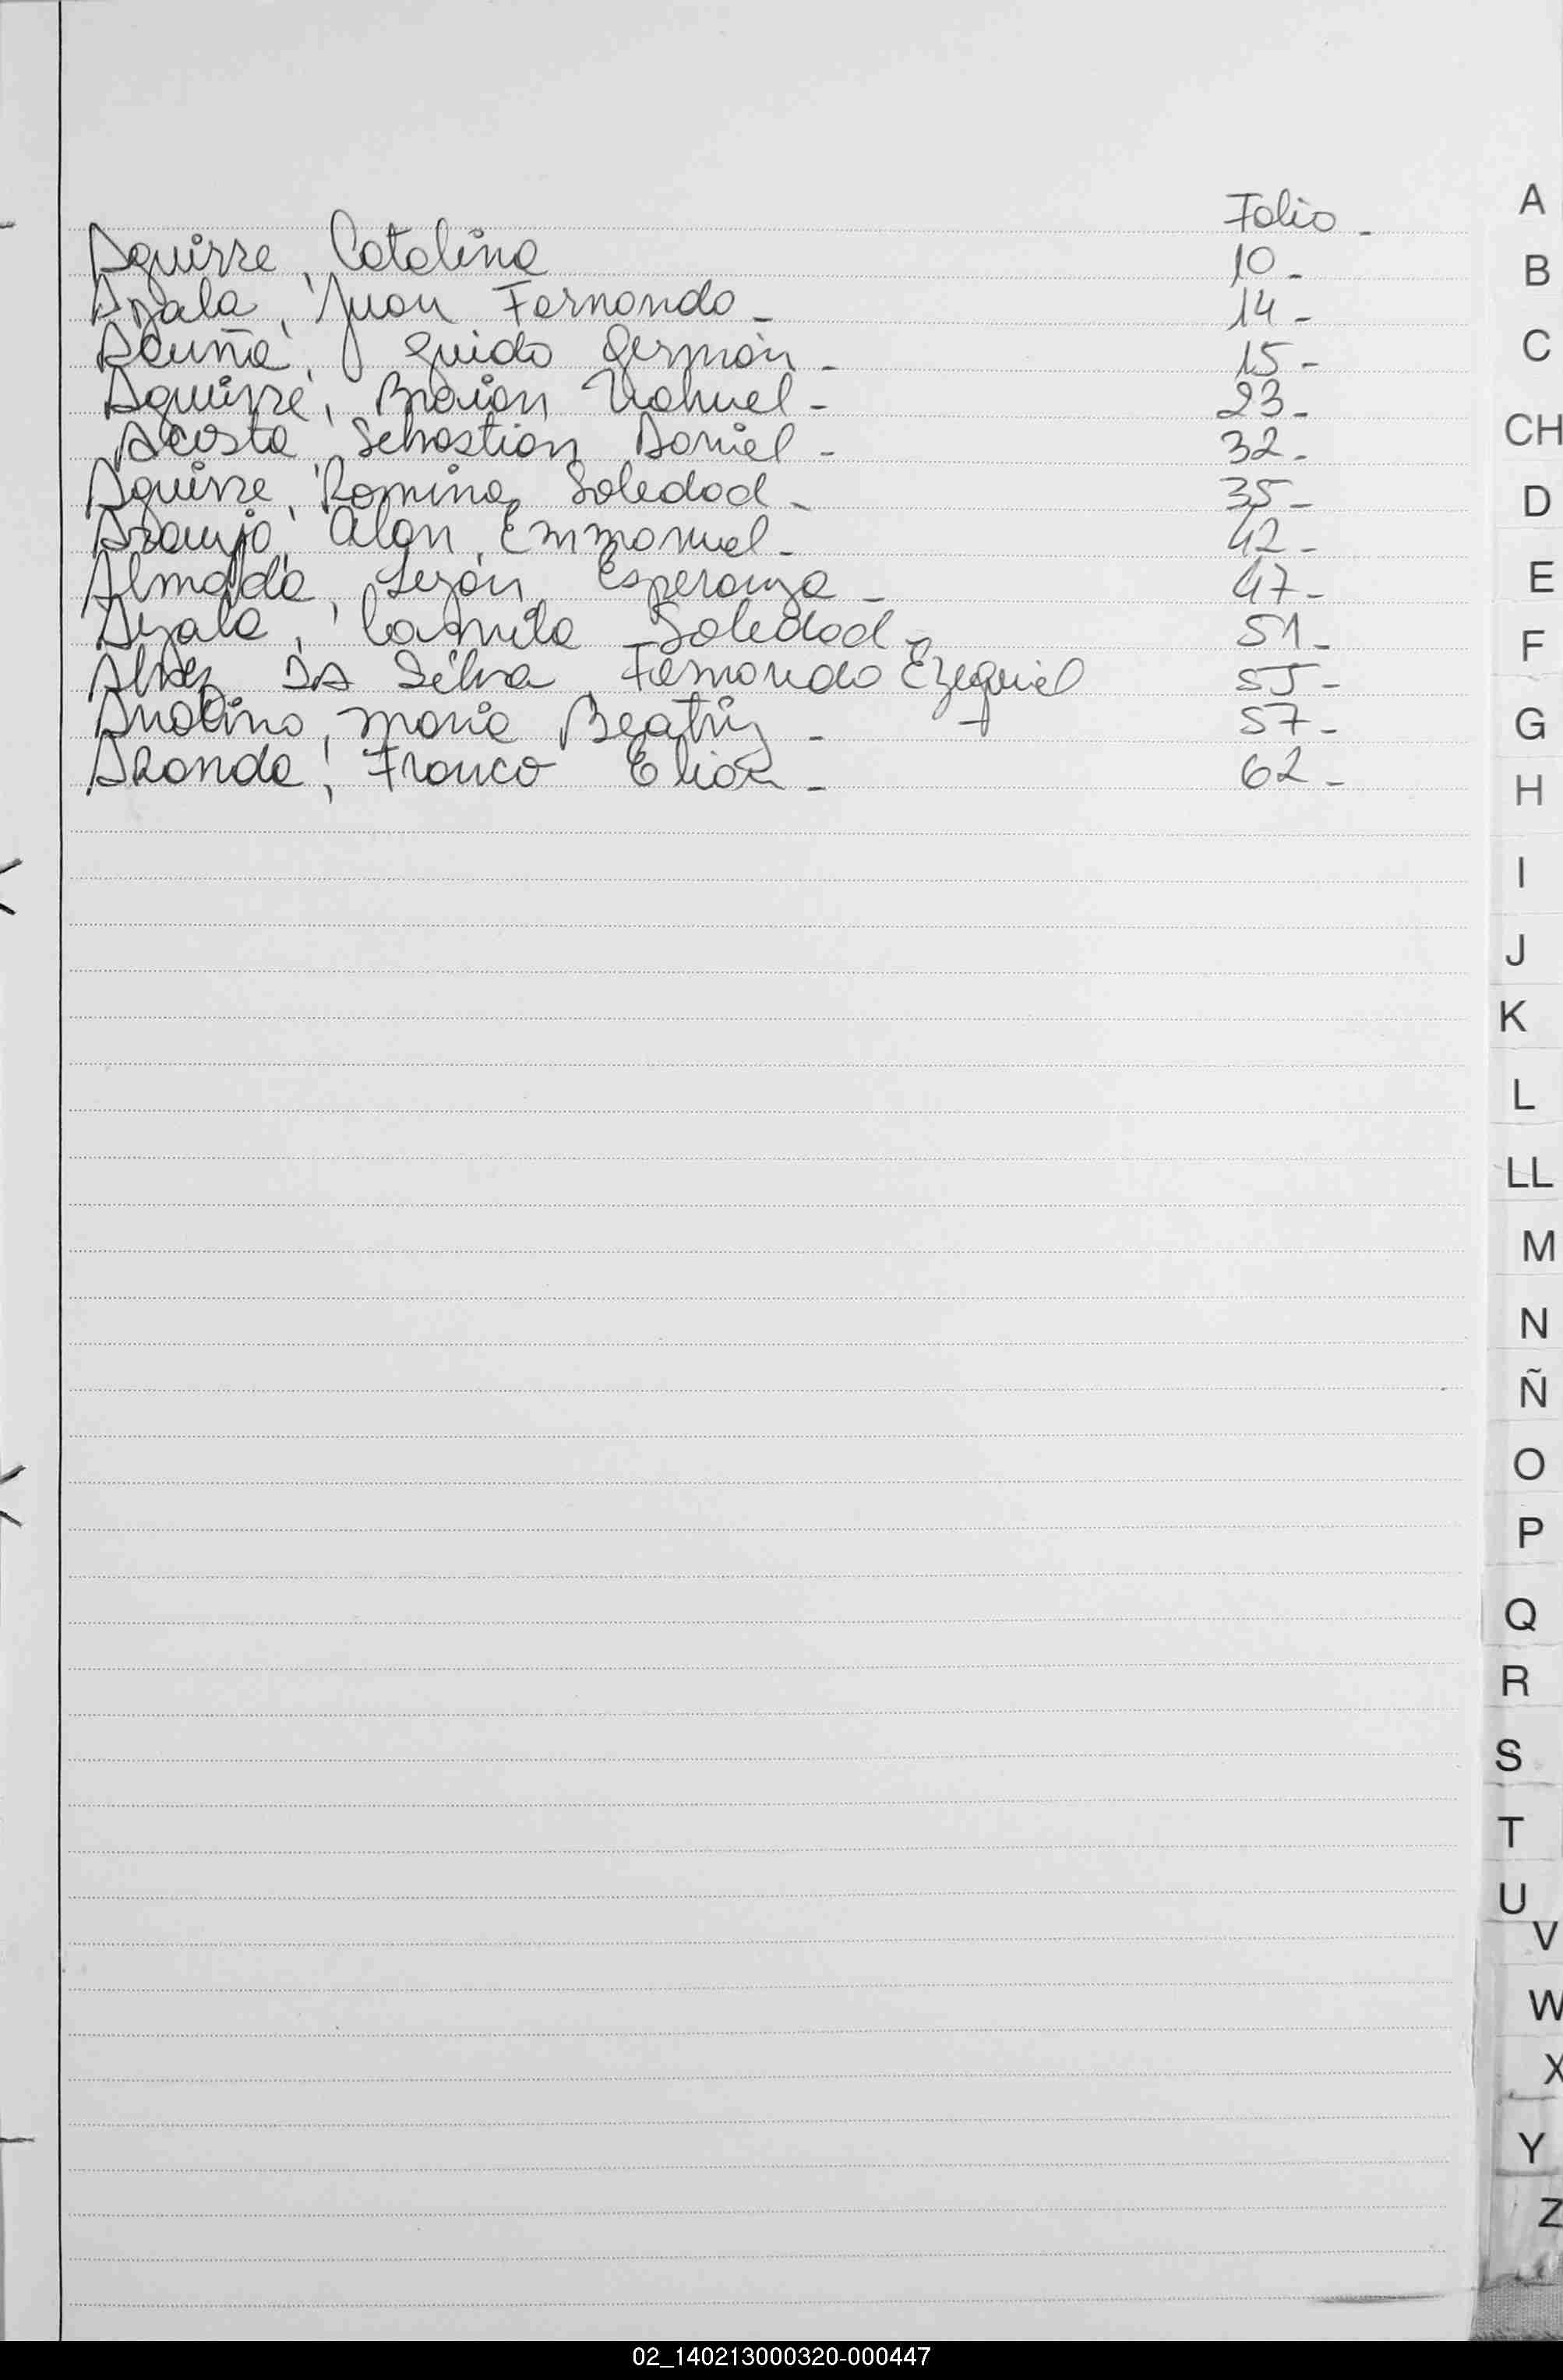 Folio -
Aguirre, Catalina 10 -
Ayala, Juan Fernando - 14 -
Acuña, Guido Germán - 15 -
Aguirre, Braian Nahuel - 23 -
Acosta, Sebastián Daniel - 32 -
Aguirre, Romina Soledad - 35 -
Araujo, Alan Emmanuel - 42 -
Almada, Esperanza - 47 -
Ayala, Camila Soledad - 51 -
Alvez Da Silva Fernando Ezequiel 55 -
María Beatriz - 57 -
Aranda, Franco Elián - 62 -
A
B
C
CH
D
E
F
G
H
I
J
K
L
LL
M
N
Ñ
O
P
Q
R
S
T
U
V
W
X
Y
Z
02_140213000320-000447